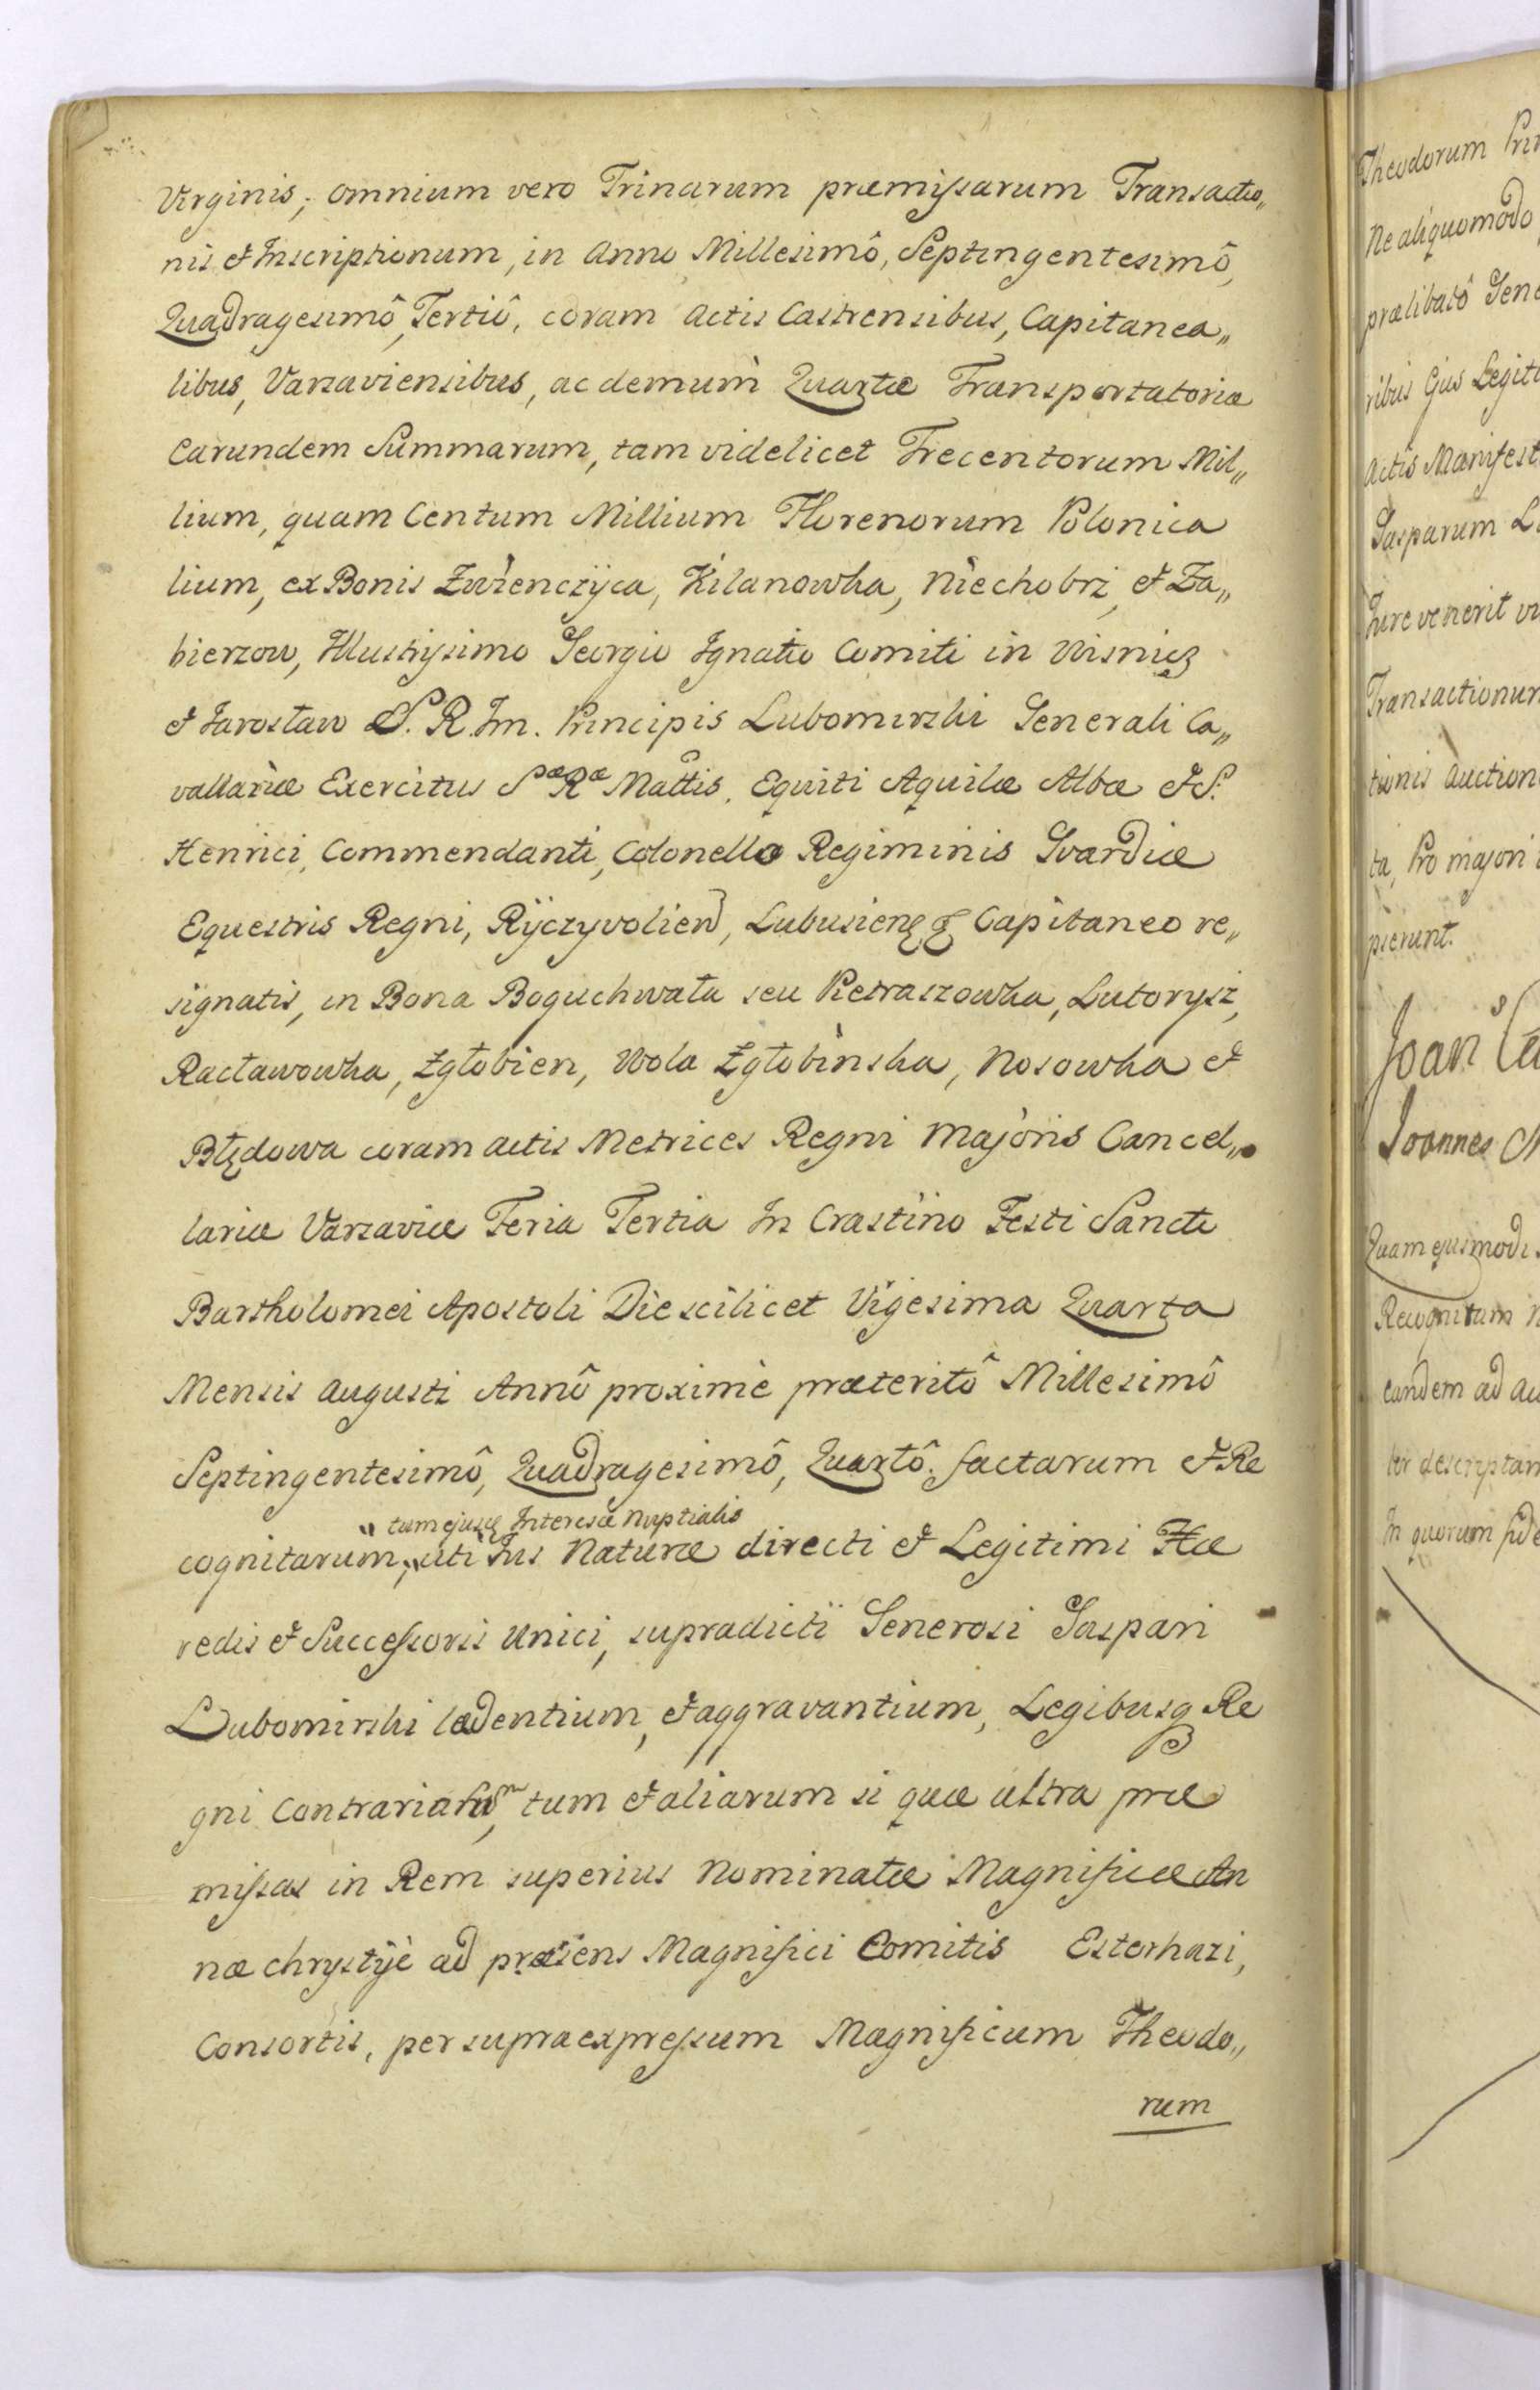 Virginis; omnium vero Trinarum præmissarum Transactio„
nis et Inscriptionum, in Anno Millesimô, Septingentesimô,
Quadragesimô, Tertiô, coram Actis Castrensibus, Capitanea„
libus, Varsaviensibus, ac demum Quartæ Transportatoriæ
earundem Summarum, tam videlicet Trecentorum Mil„
lium, quam Centum Millium Florenorum Polonica
lium, ex Bonis Zwienczÿca, Kilanowka, Niechobrz, et Za„
bierzow, Illustrissimo Georgio Ignatio Comiti in Wisnicz
et Jarosław S. R. Im. Principis Lubomirski Generali Ca„
vallariæ Exercitus Sæ Ræ Mattis, Equiti Aquilæ Albæ et S.
Henrici, Commendanti, Colonello Regiminis Gvardiæ
Equestris Regni, Rÿczyvolien, Lubusienq Capitaneo re„
signatis, in Bona Boguchwała seu Pietraszowka, Lutorysz,
Racławowka, Zgłobien, Wola Zgłobinska, Nosowka et
Błędowa coram actis Metrices Regni Majoris Cancel„
lariæ Varsaviæ Feria Tertia In Crastino Festi Sancti
Bartholomei Apostoli Die scilicet Vigesima Quarta
Mensis Augusti Annô proximè præteritô Millesimô
Septingentesimô, Quadragesimô, Quartô. factarum et Re
„ tum ejusq Interesse Nuptialis
cognitarum, uti Jus Naturæ directi et Legitimi Hæ
redis et Successoris Unici, supradicti Generosi Gaspari
Lubomirski lædentium, et aggravantium, Legibusq Re
gni Contrariarum, tum et aliarum si quæ ultra præ
missas in Rem superius Nominatæ Magnificæ An
næ Chrystÿè ad præsens Magnifici Comitis Esterhazi,
Consortis, per supraexpressum Magnificum Theodo„
rum
Theodorum Prin
Ne aliquomodo
prælibatô Gene
ribus Ejus Legiti
Actis Manifest
Gasparum L
Jure venerit
Transactionum
tionis auction
ta, Pro majori
pierunt.
Joan
Joannes
Quam ejusmodi
Recognitam
eandem ad
ter descriptam
In quorum fide